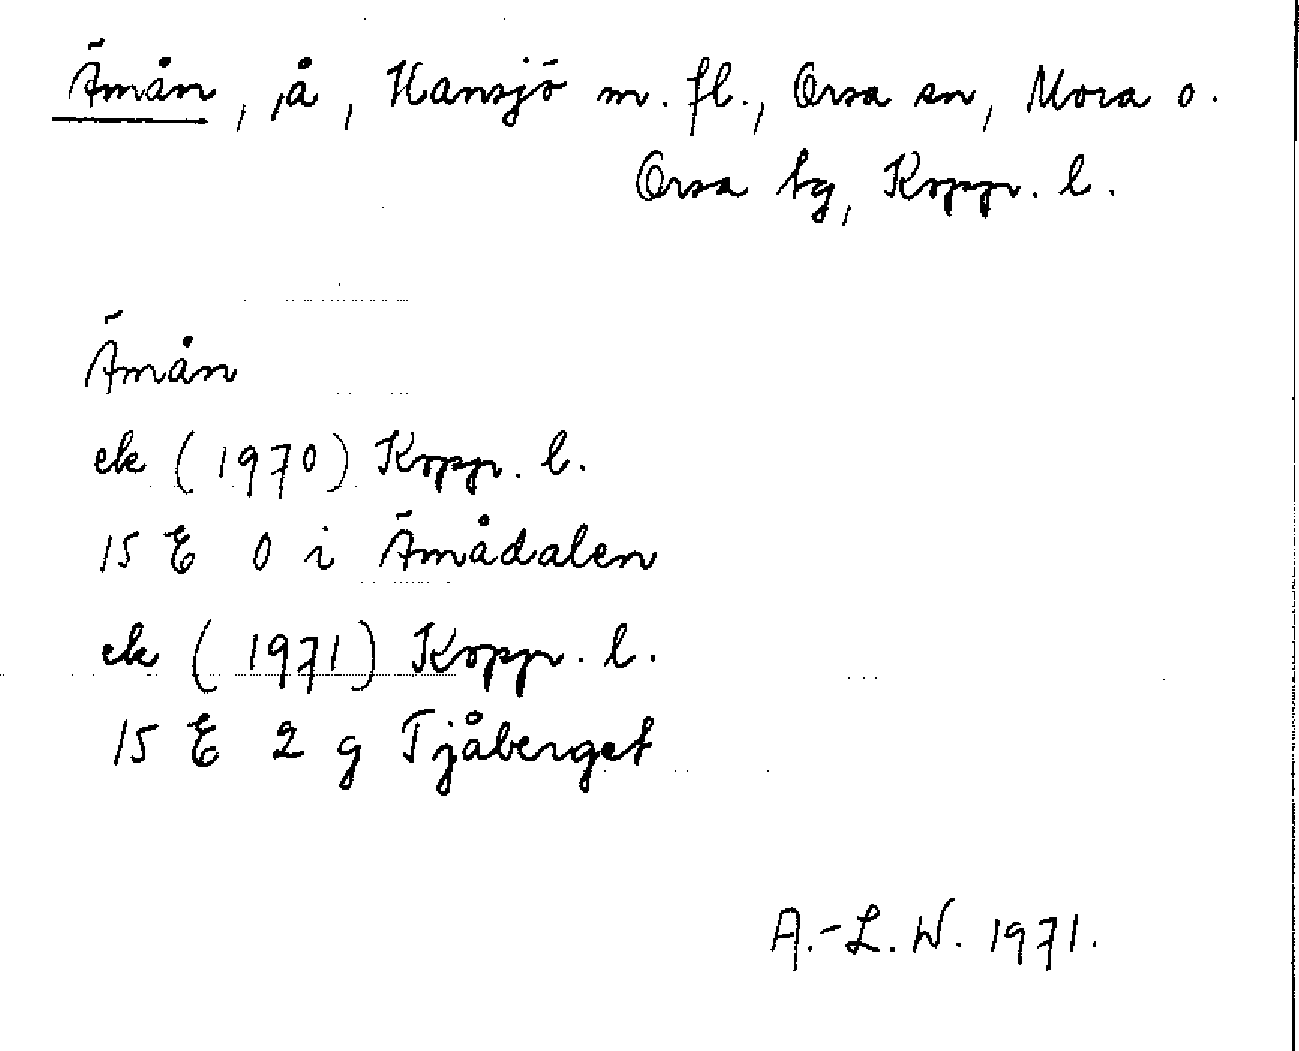 Ämån, å, Hansjö m. fl., Orsa sn, Mora o.
Orsa tg, Kopp. l.
Ämån
ek (1970) Kopp. l.
15 E 0 i Ämådalen
ek (1971) Kopp. l.
15 E 2 g Tjåberget
A.-L. W. 1971.